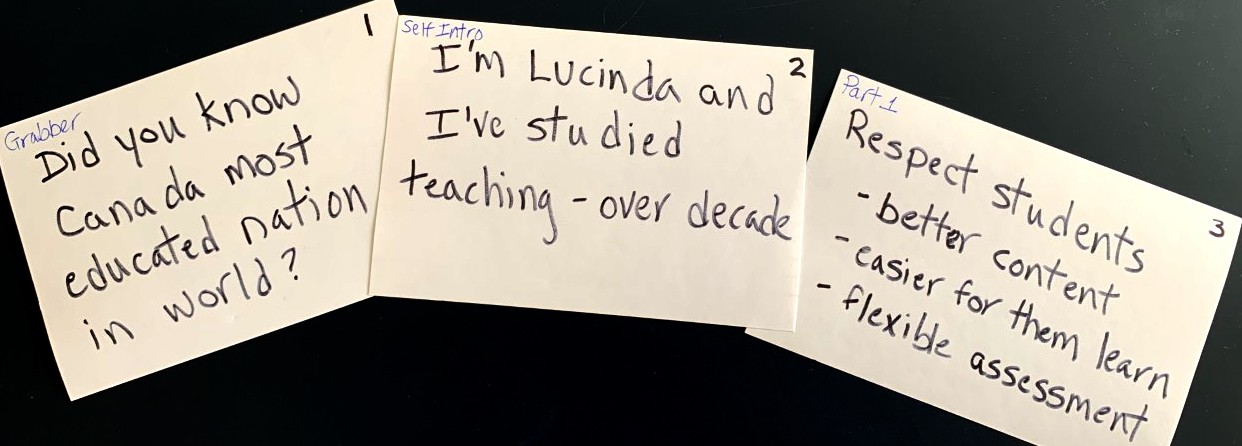 1
Grabber
Did you know
Canada most
educated nation
in world?
Self Intro
2
I'm Lucinda and
I've studied
teaching - over decade
Part 1
3
Respect students
- better content
- easier for them learn
- flexible assessment